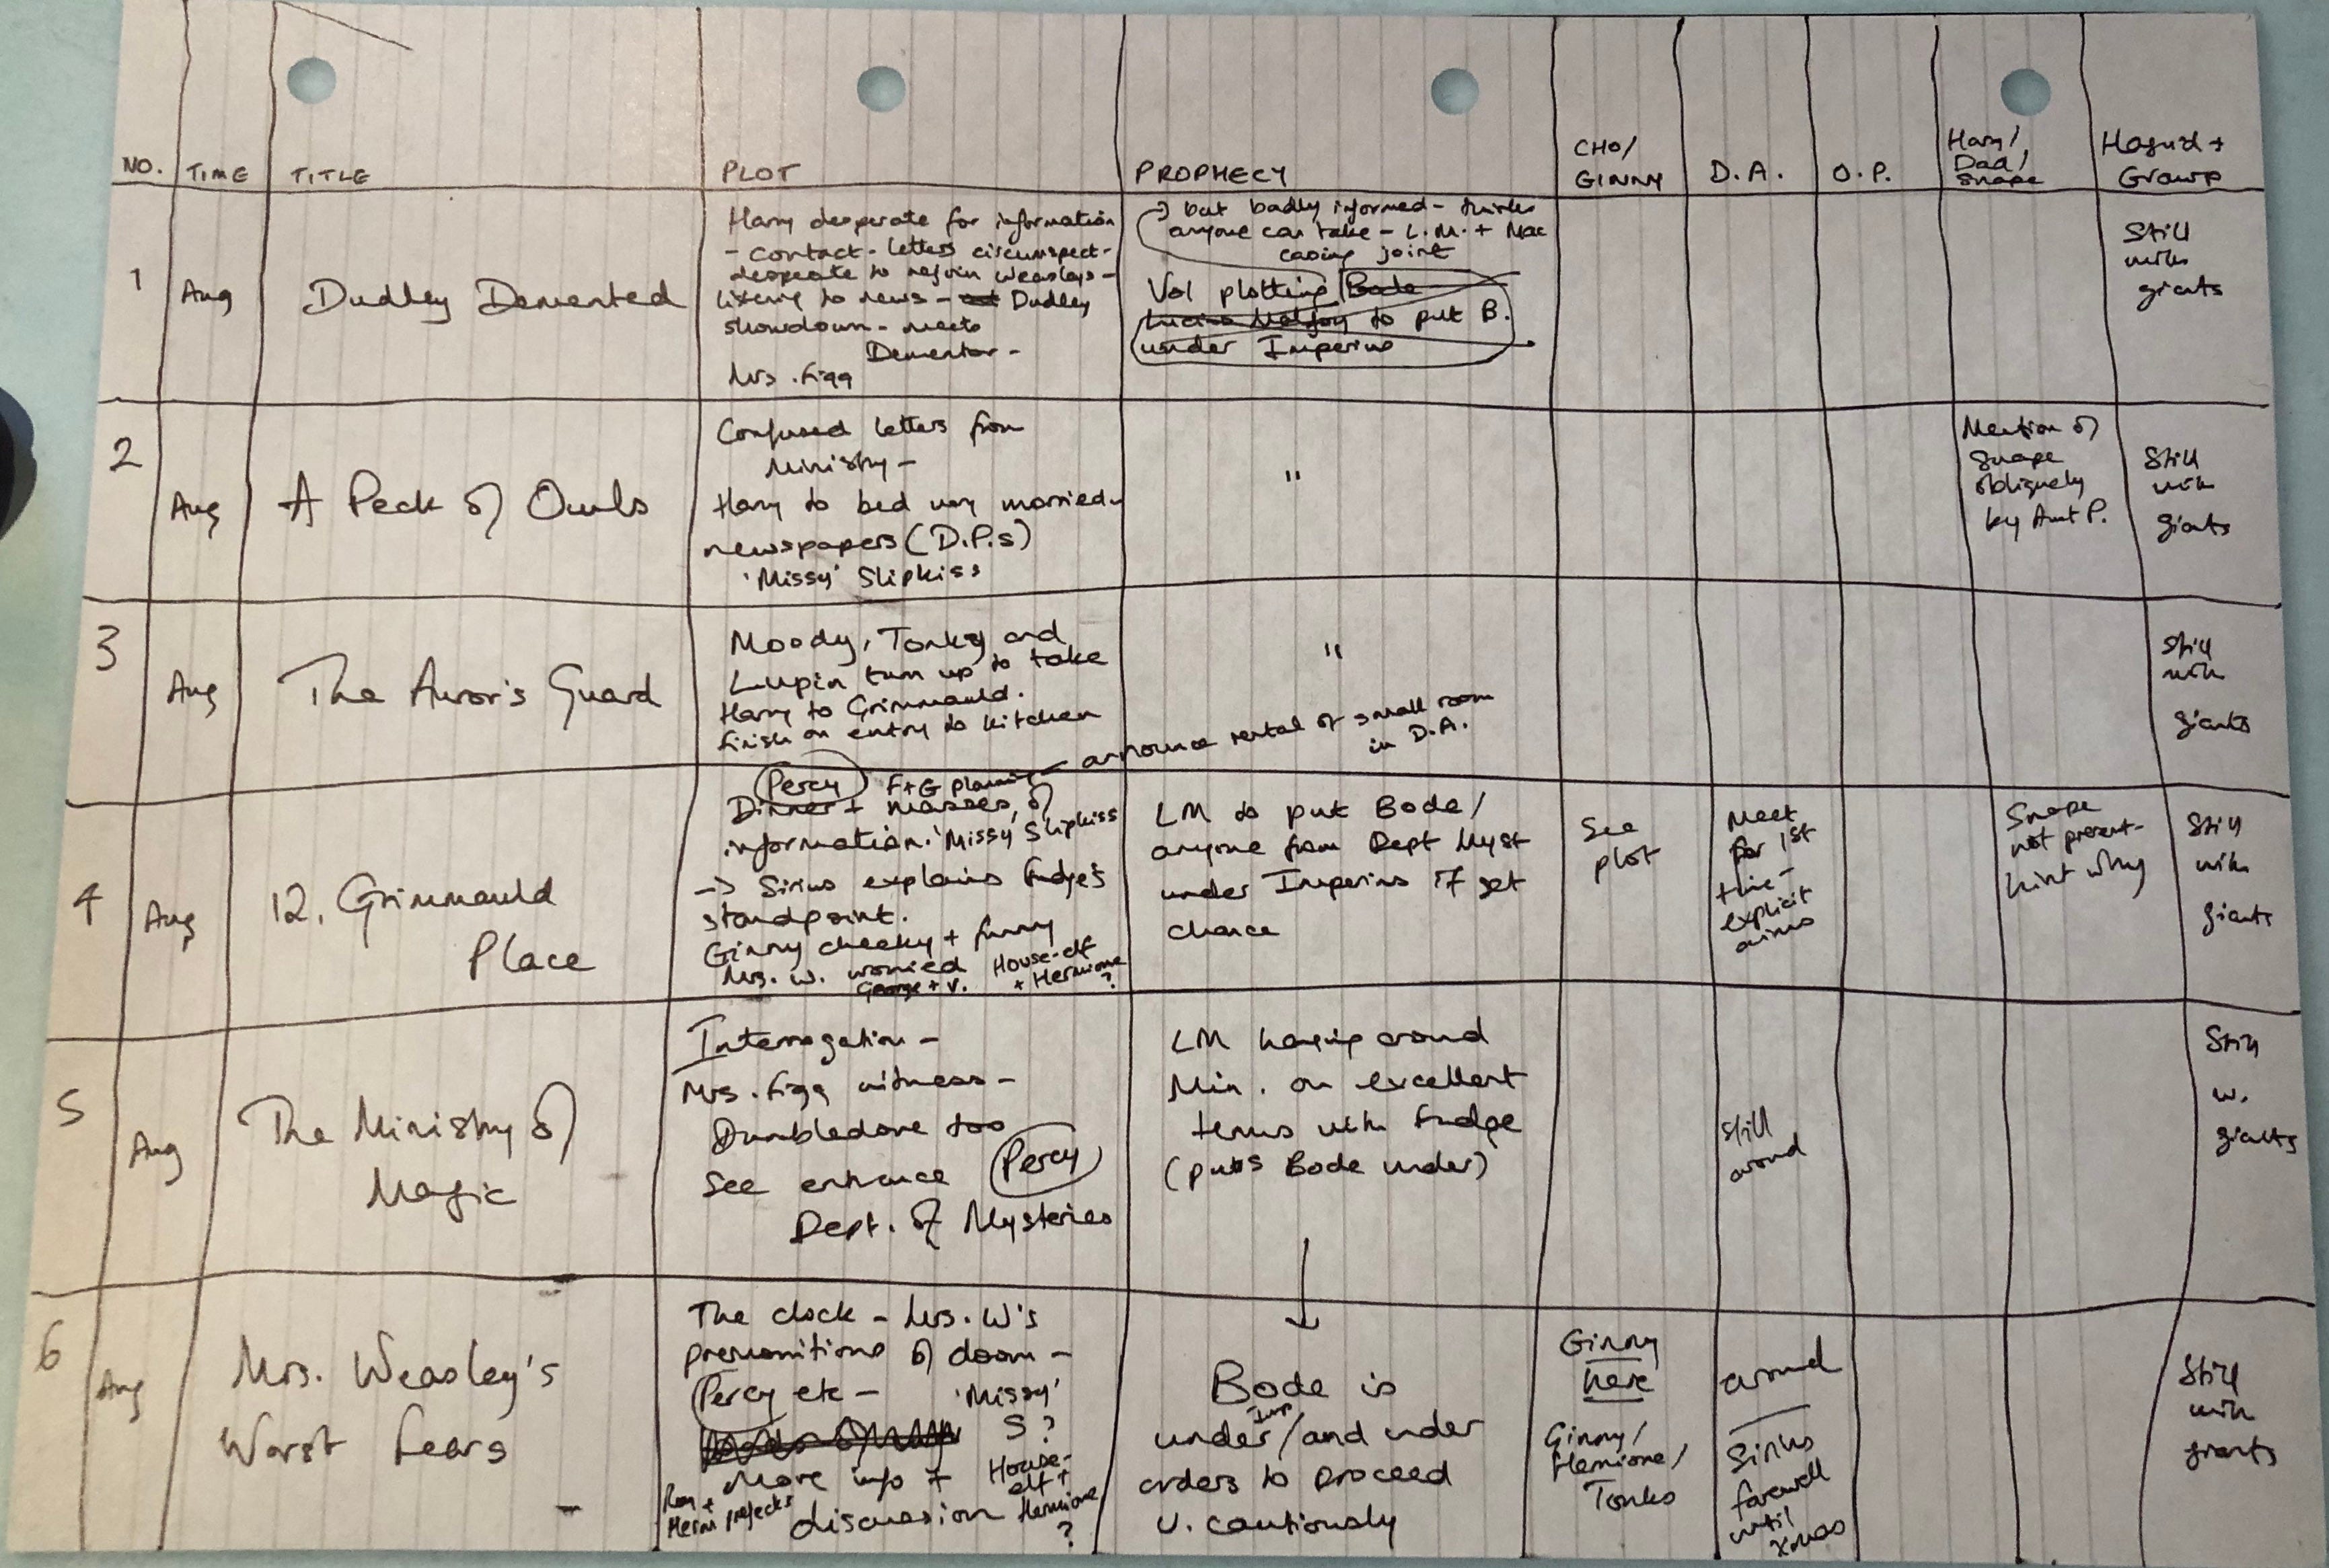 NO. TIME TITLE PLOT PROPHECY CHO/ GINNY D.A. O.P. Harry/ Dad/ Snape Hagrid + Grawp
1
Aug
Dudley Demented
Harry desperate for information
- contact - letters circumspect -
desperate to rejoin Weasleys -
listening to news - Dudley
showdown - meets
Dementor -
Mrs. Figg
→ but badly informed - thinks
anyone can take - L.M. + Mac
casing joint
Vol plotting Bode
Lucius Malfoy to put B.
under Imperius
Still
with
giants
2
Aug
A Peck of Owls
Confused letters from
Ministry -
Harry to bed very worried -
newspapers (D.P.s)
'Missy' Slipkiss
"
Mention of
Snape
obliquely
by Aunt P.
Still
with
giants
3
Aug
The Auror's Guard
Moody, Tonks and
Lupin turn up to take
Harry to Grimmauld.
finish on entry to kitchen
"
Still
with
giants
4
Aug
12, Grimmauld
Place
Percy F+G planning - announce rental of small room
in D.A.
Dinner + masses of
information: 'Missy' Slipkiss
-> Sirius explains Fudge's
standpoint.
Ginny cheeky + funny
Mrs. W. worried
George + V.
House-elf
+ Hermione
?
LM to put Bode/
anyone from Dept Myst
under Imperius if get
chance
See
plot
Meet
for 1st
time -
explicit
aims
Snape
not present -
hint why
Still
with
giants
5
Aug
The Ministry of
Magic
Interrogation -
Mrs. Figg witness -
Dumbledore too
See entrance Percy
Dept. of Mysteries
LM hanging around
Min. on excellent
terms with Fudge
(puts Bode under)
still
around
Still
w.
giants
6
Aug
Mrs. Weasley's
Worst Fears
The clock - Mrs. W's
premonitions of doom -
Percy etc - 'Missy'
S?
More info +
discussion
Ron +
Herm prefects
House-
elf +
Hermione
?
Bode is
under Imp/and under
orders to proceed
v. cautiously
Ginny
here
Ginny/
Hermione/
Tonks
around
Sirius
farewell
until
Xmas
Still
with
giants